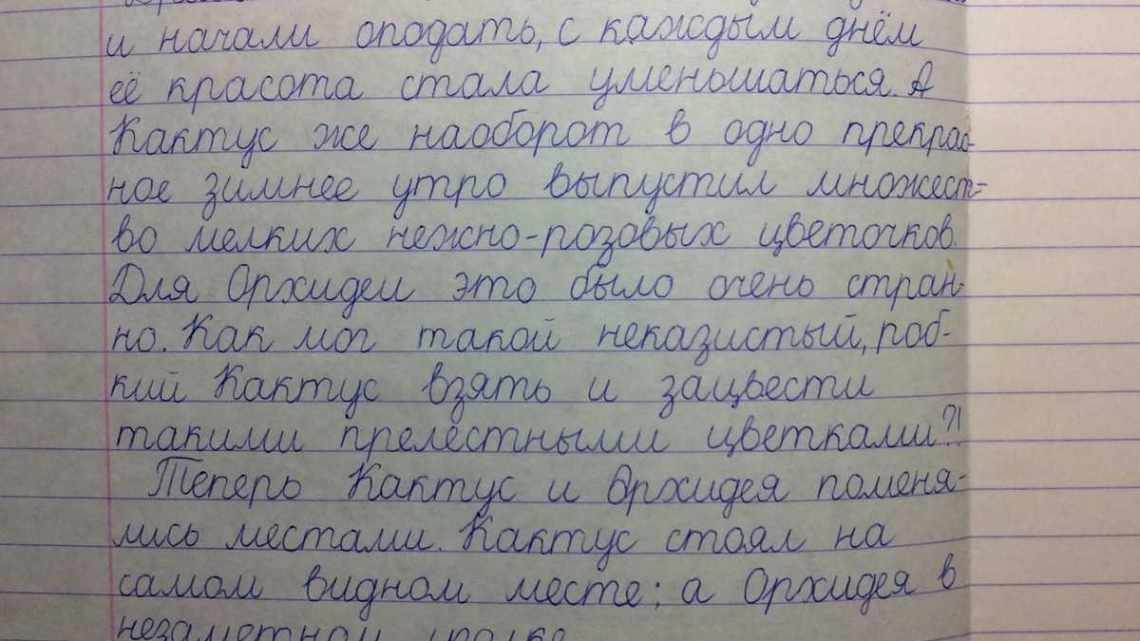 и начали оподать, с каждым днём
её красота стала уменьшаться. А
Кактус же наоборот в одно прекрас-
ное зимнее утро выпустил множест=
во мелких нежно-розовых цветочков.
Для Орхидеи это было очень стран-
но. Как мог такой неказистый, роб-
кий Кактус взять и зацвести
такими прелестными цветками?!
Теперь Кактус и Орхидея поменя-
лись местами. Кактус стоял на
самом видном месте; а Орхидея в
незаметном уголке